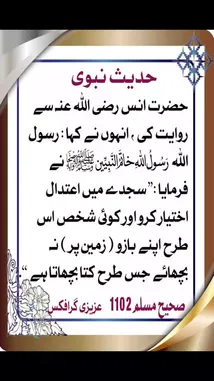 حدیث نبوی
حضرت انس رضی اللہ عنہ سے
روایت کی ، انہوں نے کہا : رسول
اللہ رَسُولُ اللہِ خَاتَمُ النَّبِیّٖن ﷺ نے
فرمایا :”سجدے میں اعتدال
اختیار کرو اور کوئی شخص اس
طرح اپنے بازو ( زمین پر ) نہ
بچھائے جس طرح کتا بچھاتا ہے “
صحیح مسلم 1102 عزیزی گرافکس